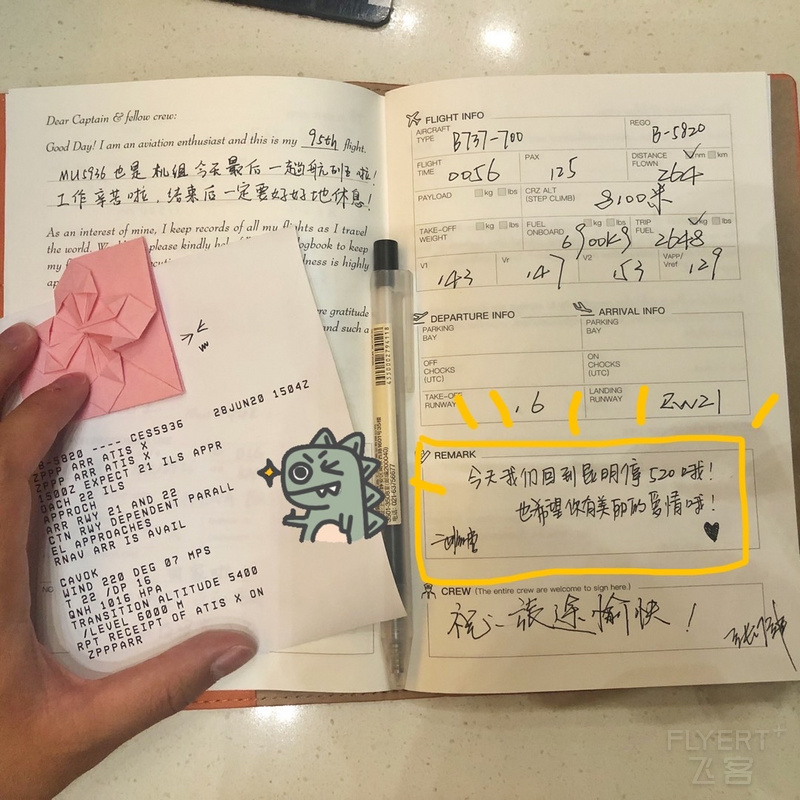 Dear Captain & fellow crew:
Good Day! I am an aviation enthusiast and this is my 95th flight.
MU5936 也是机组今天最后一趟航班啦!
工作辛苦啦,结束后一定要好好地休息!
As an interest of mine, I keep records of all my flights as I travel
the world.
please kindly
logbook to keep
my
is highly
gratitude
and such a
28JUN20 1504Z
B-5820 ---- CES5936
ZPPP ARR ATIS X
ZPPP ARR ATIS X
1500Z EXPECT 21 ILS APPR
OACH 22 ILS
APPROCH
ARR RWY 21 AND 22
CTN RWY DEPENDENT PARALL
EL APPROACHES
RNAV ARR IS AVAIL
CAVOK
WIND 220 DEG 07 MPS
T 22 /DP 16
QNH 1016 HPA
TRANSITION ALTITUDE 5400
/LEVEL 6000 M
RPT RECEIPT OF ATIS X ON
ZPPPARR
FLIGHT INFO
AIRCRAFT TYPE B737-700
REGO B-5820
FLIGHT TIME 0056
PAX 125
DISTANCE FLOWN nm km 264
PAYLOAD kg lbs
CRZ ALT (STEP CLIMB) 8100米
TAKE-OFF WEIGHT
FUEL ONBOARD kg lbs 6900KG
TRIP FUEL kg lbs 2648
V1 143
Vr 147
V2 153
VAPP/Vref 129
DEPARTURE INFO
ARRIVAL INFO
PARKING BAY
PARKING BAY
OFF CHOCKS (UTC)
ON CHOCKS (UTC)
TAKE-OFF RUNWAY 16
LANDING RUNWAY
REMARK
今天我们回到昆明停520哦!
也希望你有美丽的爱情哦!
CREW (The entire crew are welcome to sign here.)
祝:旅途愉快!
FLYERT+
飞客